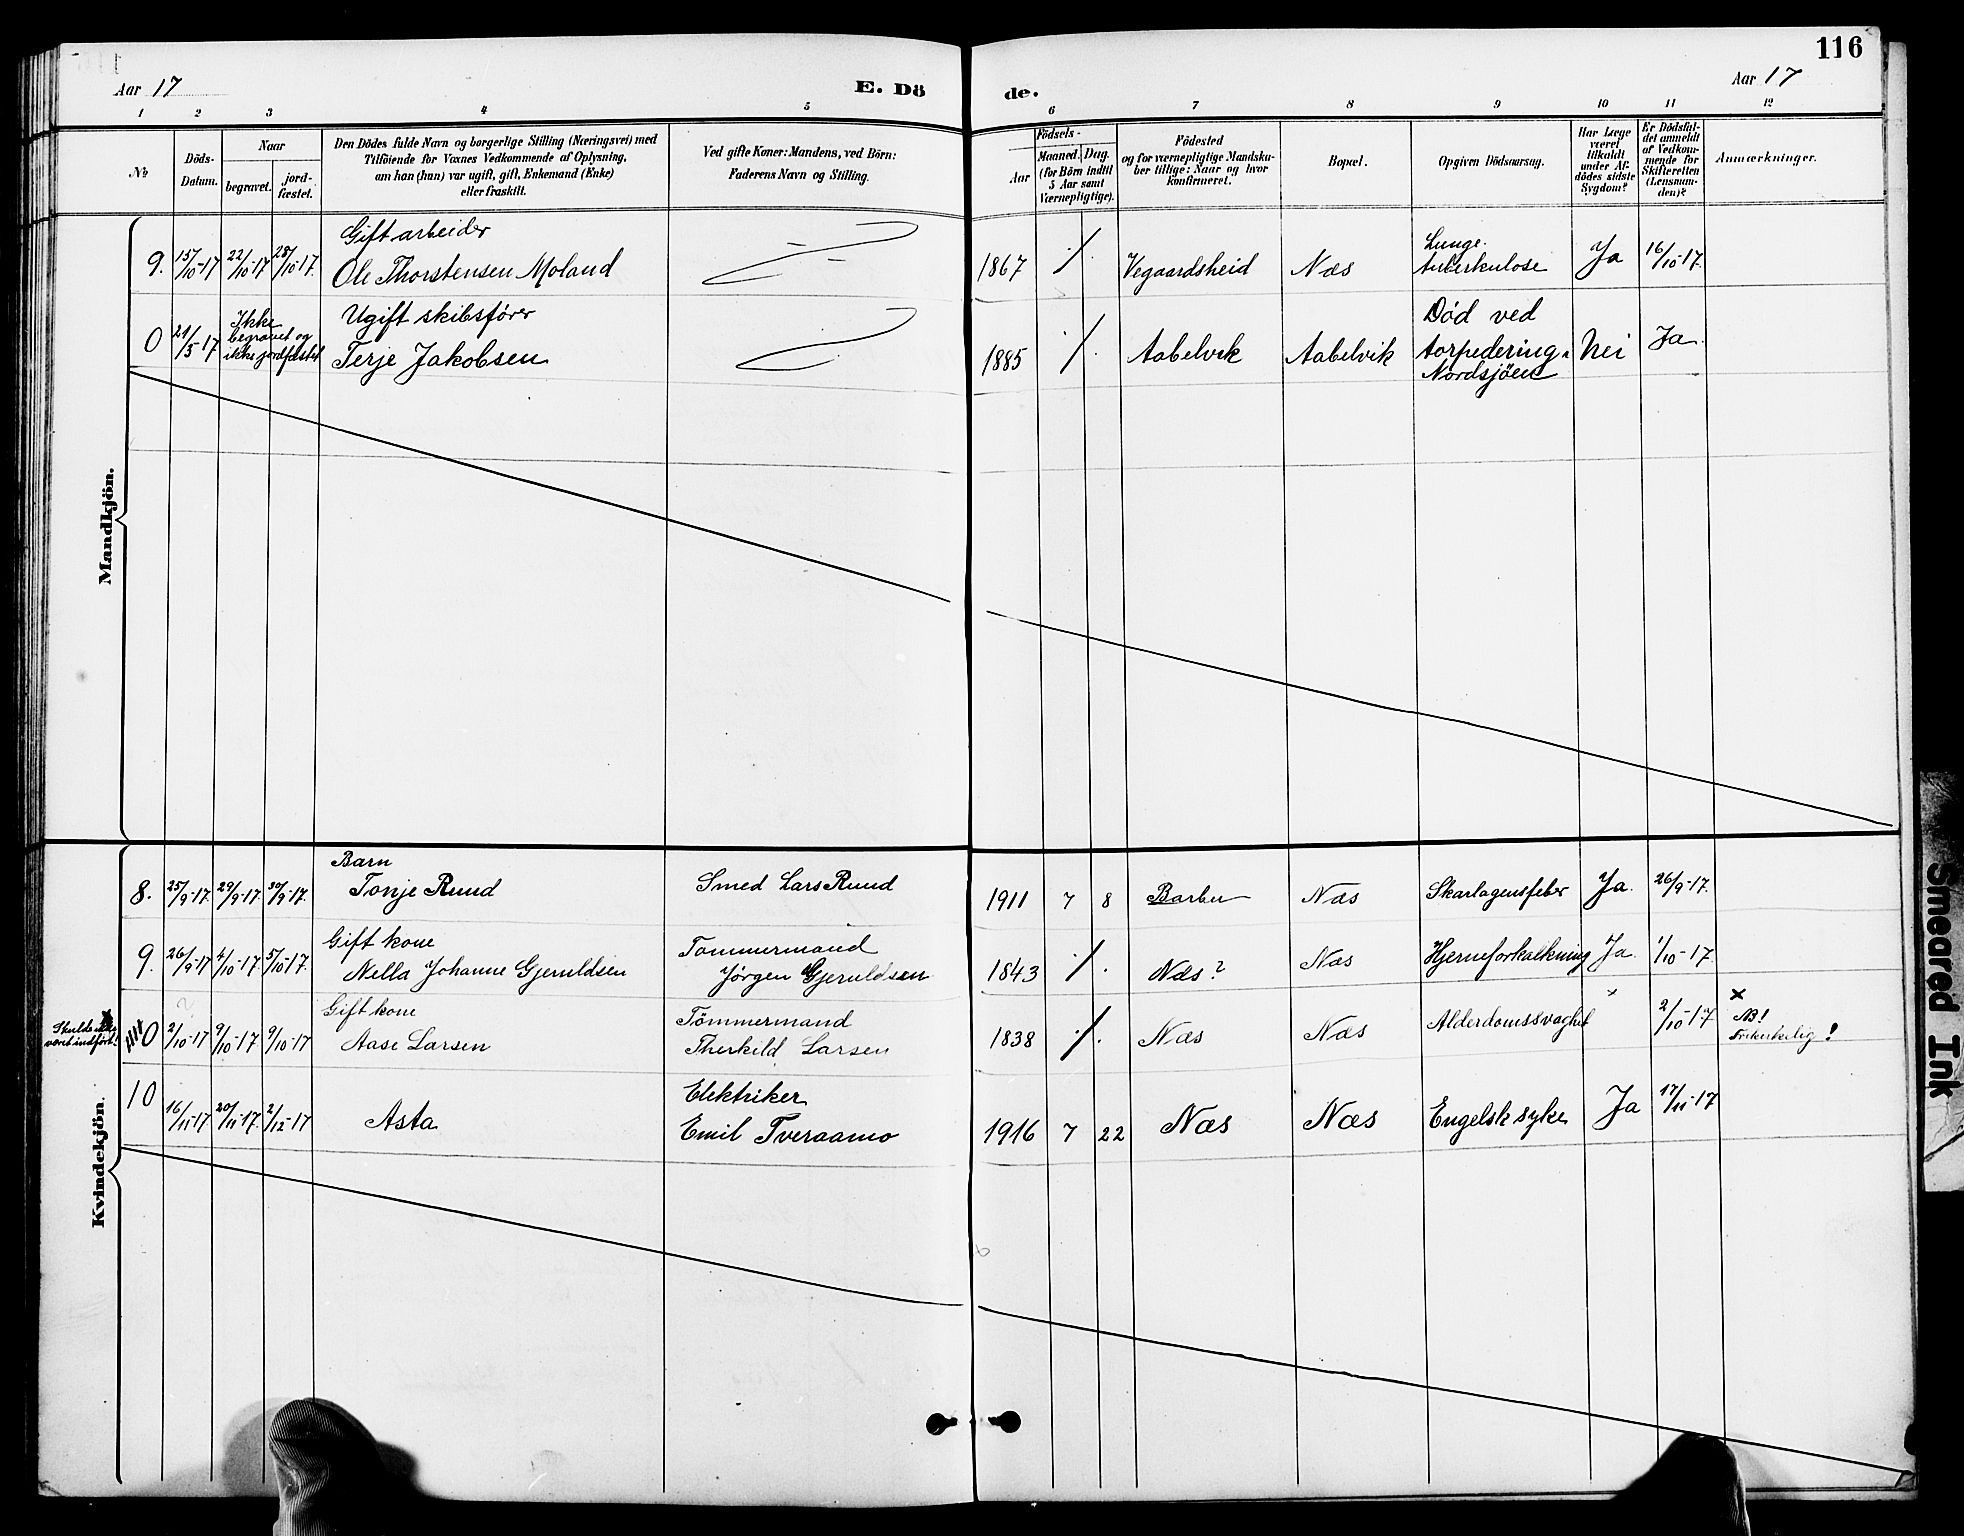 116
Aar 17
E. Dö
de.
Aar 17
1 2 3 4 5 6 7 8 9 10 11 12
No
Döds-Datum.
Naar
begravet.
jord-fæstet.
Den Dödes fulde Navn og borgerlige Stilling (Næringsvei) med
Tilföiende for Voxnes Vedkommende af Oplysning,
om han (hun) var ugift, gift, Enkemand (Enke)
eller fraskilt.
Ved gifte Koner: Mandens, ved Börn:
Faderens Navn og Stilling.
Födsels-
Aar
Maaned. Dag.
(for Börn indtil
5 Aar samt
Værnepligtige).
Födested
og for værnepligtige Mandsku-
ber tillige: Naar og hvor
konfirmeret.
Bopæl.
Opgiven Dödsaarsag.
Har Læge
været
tilkaldt
under Af-
dödes sidste
Sygdom?
Er Dödsfal-
det anmeldt
af Vedkom-
mende for
Skifteretten
(Lensman-
den)?
Anmærkninger.
Mandkjön.
Gift arbeider
9. 15/10-17 22/10-17 28/10-17. Ole Thorstensen Moland 1867 Vegaardsheid Næs Lunge-
tuberkulose Ja 16/10-17.
Ugift skibsförer
0 21/5-17 Ikke
begravet og
ikke jordfæstet Terje Jakobsen 1885 Aabelvik Aabelvik Död ved
torpedering i
Nordsjöen Nei Ja.
Kvindekjön.
Barn
8. 25/9-17. 29/9-17. 30/9-17. Tonje Ruud Smed Lars Ruud 1911 7 8 Barbu Næs Skarlagensfeber Ja. 26/9-17.
Gift kone Tømmermand
9. 26/9-17 4/10-17 5/10-17. Nella Johanne Gjeruldsen Jørgen Gjeruldsen 1843 Næs? Næs Hjerneforkalkning Ja. 1/10-17.
Gift kone Tömmermand
Skulde ikke
været indført!
0 2/10-17 9/10-17 9/10-17 Aase Larsen Therkild Larsen 1838 Næs Næs Alderdomssvaghet × 2/10-17 ×
NB!
Frikirkelig!
Elektriker
10 16/11-17 20/11-17. 2/12-17 Asta Emil Tveraamo 1916 7 22 Næs Næs Engelsk syke Ja 17/11-17
Smeared Ink